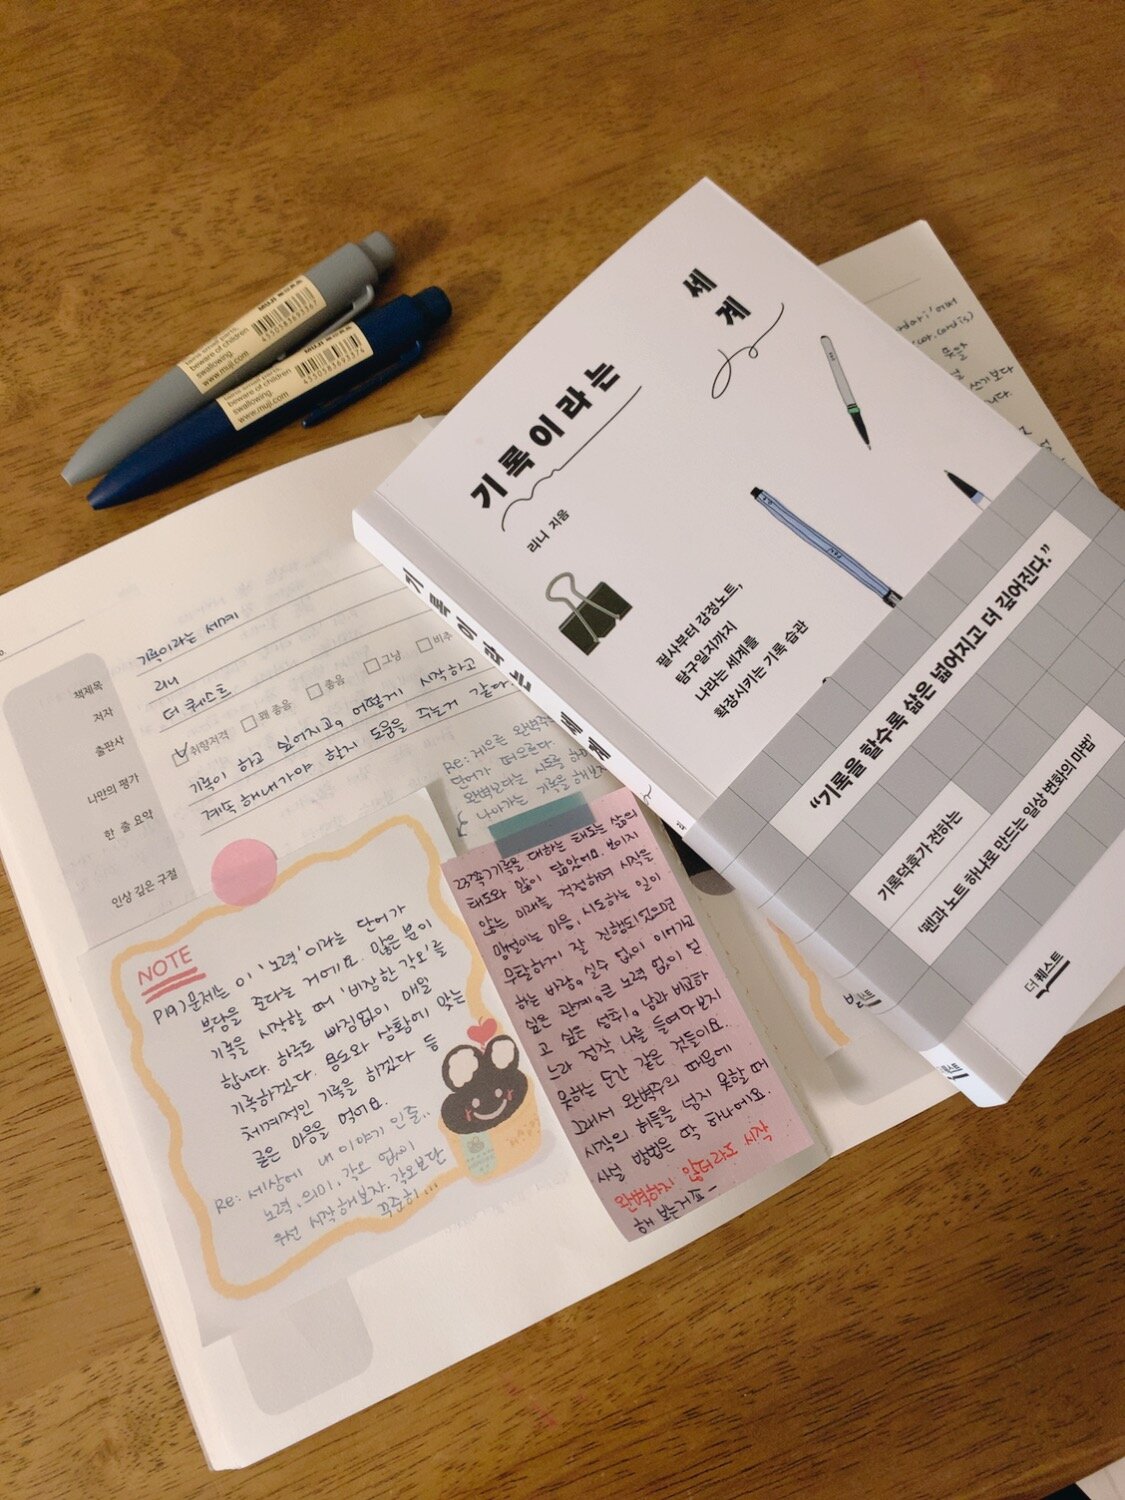 beware of children
swallowing
www.muji.com
MUJI 無印良品
4550583693367
beware of children
swallowing
www.muji.com
MUJI 無印良品
4550583693374
기록이라는
세계
리니 지음
필사부터 감정노트,
탐구일지까지
나라는 세계를
확장시키는 기록 습관
“기록을 할수록 삶은 넓어지고 더 깊어진다.”
기록덕후가 전하는
‘펜과 노트 하나로 만드는 일상 변화의 마법’
더 퀘스트
기록이라는 세계
책제목
기록이라는 세계
저자
리니
출판사
더 퀘스트
나만의 평가
취향저격 꽤 좋음 좋음 그냥 비추
한 줄 요약
기록이 하고 싶어지고, 어떻게 시작하고
계속 해내가야 할지 도움을 주는거 같아
인상 깊은 구절
Re: 게으른 완벽주의
단어가 떠오른다.
완벽보다는 시도를 하며
나아가는 기록을 해보자
NOTE
P19) 문제는 이 '노력'이라는 단어가
부담을 준다는 거예요. 많은 분이
기록을 시작할 때 '비장한 각오'를
합니다. 하루도 빠짐없이 매일
기록하겠다. 용도와 상황에 맞는
체계적인 기록을 하겠다 등
굳은 마음을 먹어요.
Re: 세상에 내 이야기 인줄..
노력, 의미, 각오 없이
우선 시작해보자. 각오보단
꾸준히!!!
237쪽) 기록을 대하는 태도는 삶의
태도와 많이 닮았어요. 보이지
않는 미래를 걱정하며 시작을
망설이는 마음, 시도하는 일이
무탈하게 잘 진행되었으면
하는 바람, 실수 없이 이어가고
싶은 관계, 큰 노력 없이 얻
고 싶은 성취, 남과 비교하
느라 정작 나를 들여다보지
못하는 순간 같은 것들이요.
그래서 완벽주의 때문에
시작의 허들을 넘지 못할 때
쓰실 방법은 딱 하나예요.
완벽하지 않더라도 시작
해 보는거죠-